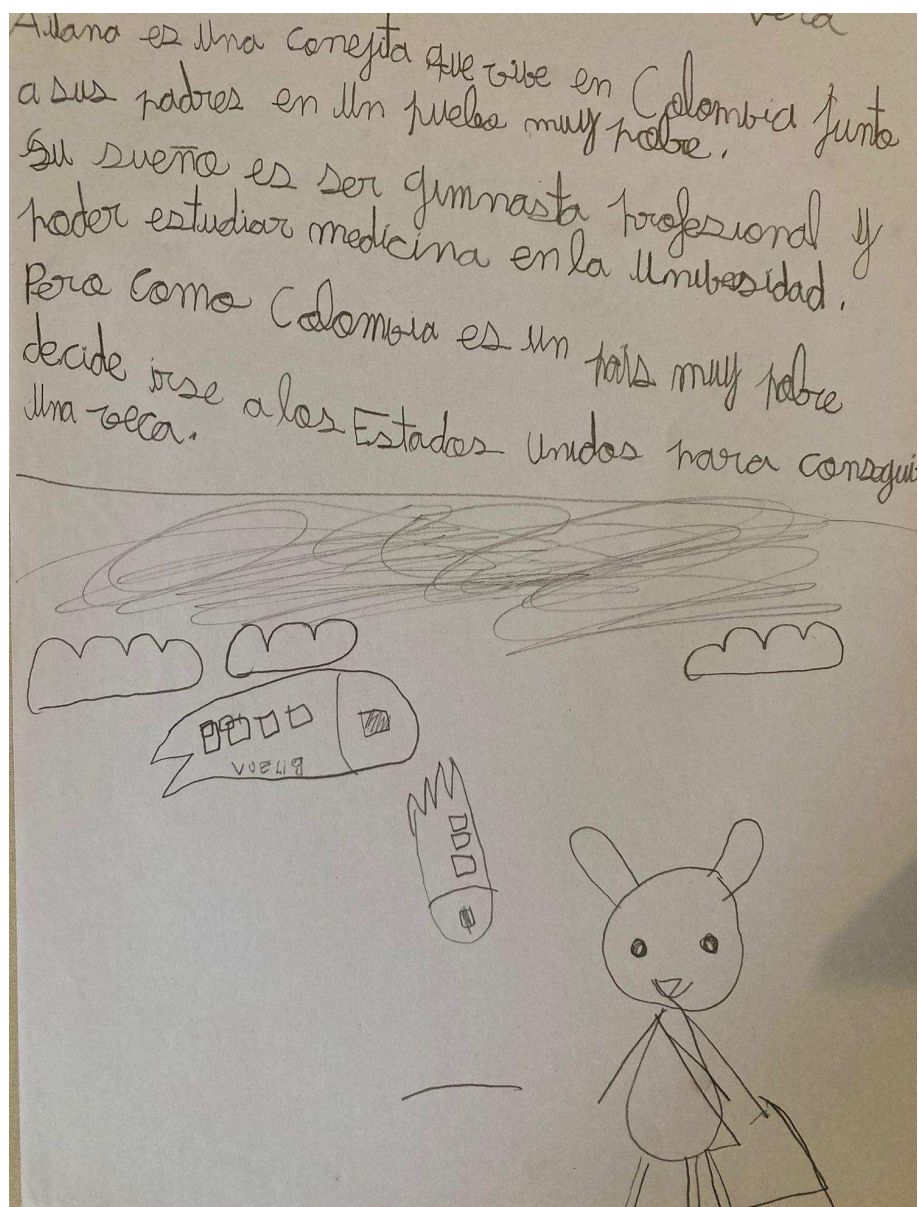 Vera
Aitana es una conejita que vive en Colombia junto
a sus padres en un pueblo muy pobre.
Su sueño es ser gimnasta profesional y
poder estudiar medicina en la unibesidad.
Pero como Colombia es un país muy pobre
decide irse a los Estados Unidos para consegui
una veca.